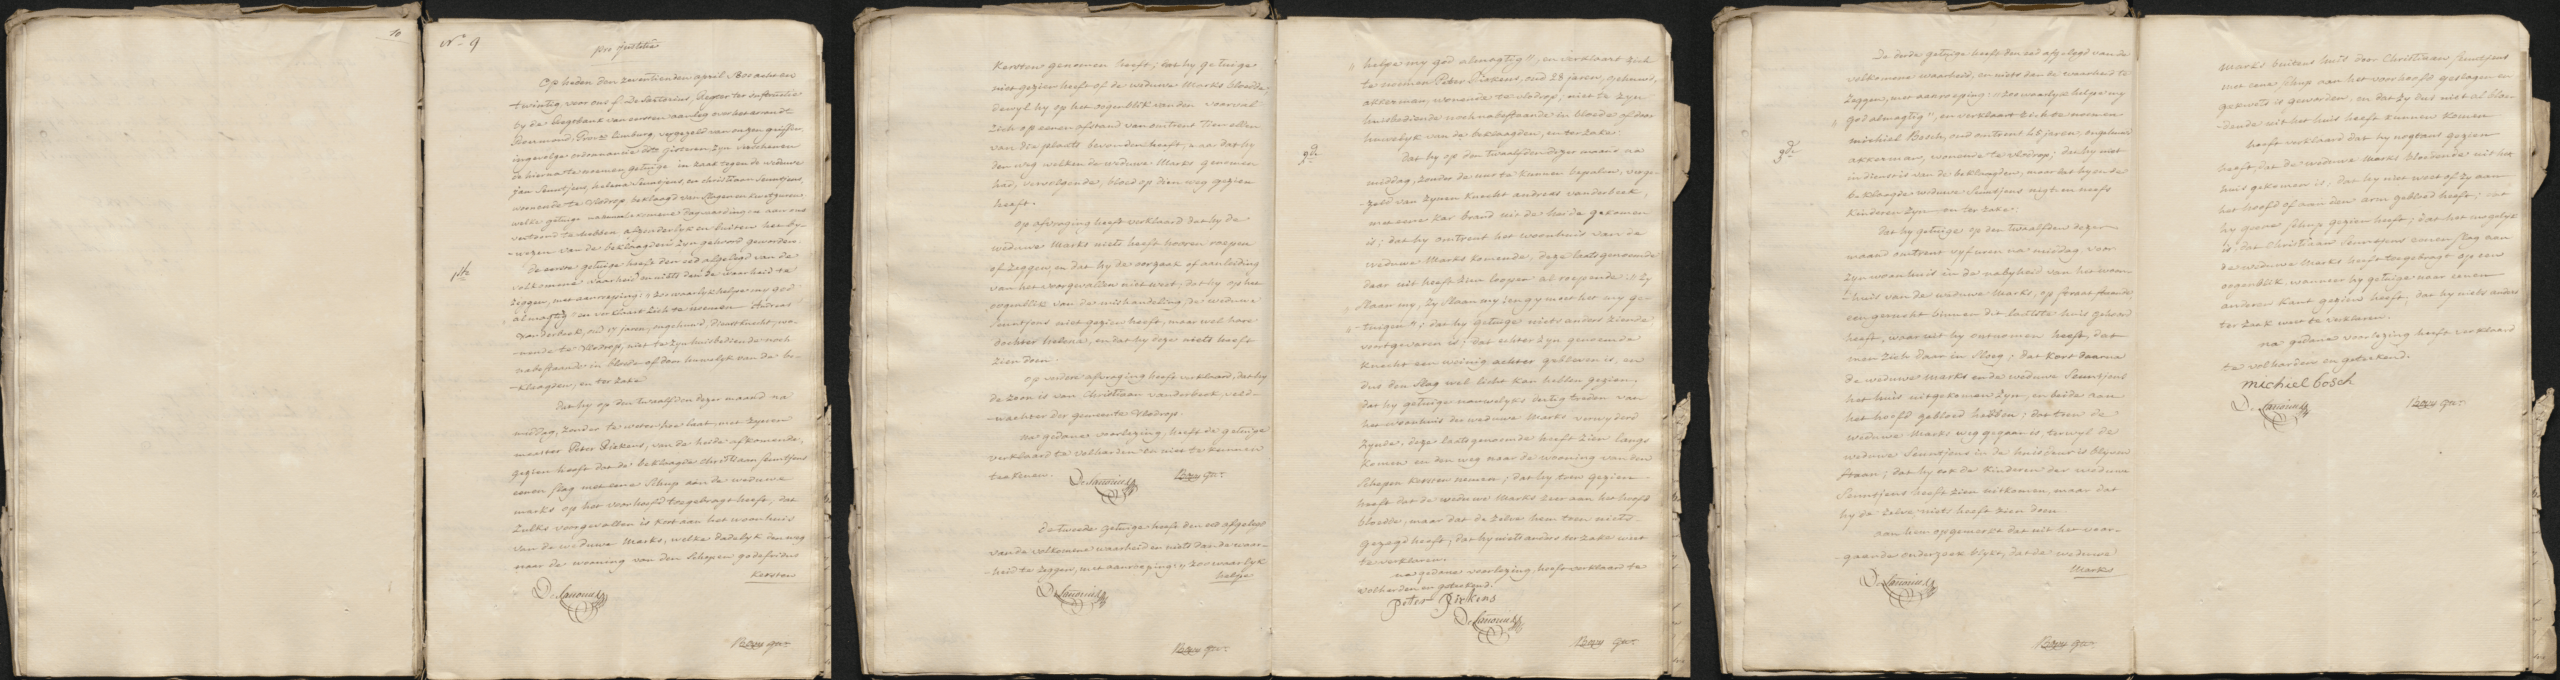 10
No 9
pro justitia
Op heden den zeventienden april 18 een acht en
twintig, voor ons f. De Sartorius, Regter ter instructie
by de Regtbank van eersten aanleg over het arrondt
Roermond, Prove Limburg, vergezeld van onzen griffier,
ingevolge ordonnantie van gisteren, zyn verschenen
de hierna te noemen getuige in zaak tegen de weduwe
jan Seuntjens, helena Seuntjens, en christiaan Seuntjens,
woonende te Vlodrop, beklaagd van slagen en kwetzuren
welke getuige na bekomene dagvaarding en aan ons
vertoond te hebben afzonderlyk en buiten het by-
-wezen van de beklaagden zyn gehoord geworden.
1ste
De eerste getuige heeft den eed afgelegd van de
volkomene waarheid en niets dan de waarheid te
zeggen, met aanroeping: "zoo waarlyk helpe my god
almagtig" en verklaart zich te noemen Andreas
Vanderbeek, oud 17 jaren, ongehuwd, dienstknecht, wo-
-nende te Vlodrop, niet te zyn huisbediende noch
nabestaande in bloede of door huwelyk van de be-
-klaagden, en ter zake
Dat hy op den twaalfden dezer maand na
middag, zonder te weten hoe laat, met zynen
meester Peter Dirkens, van de heide afkomende,
gezien heeft dat de beklaagde Christiaan Seuntjens
eenen slag met eene schup aan de weduwe
marks op het voorhoofd toegebragt heeft, dat
zulks voorgevallen is kort aan het woonhuis
van de weduwe Marks, welke dadelyk den weg
naar de wooning van den schepen godefridus
Kersten
De Sartorius
Kersten genomen heeft; dat hy getuige
niet gezien heeft of de weduwe Marks bloedde,
dewyl hy op het oogenblik van den voorval
zich op eenen afstand van omtrent tien ellen
van die plaats bevonden heeft, maar dat hy
den weg welken de weduwe Marks genomen
had, vervolgende, bloed op dien weg gezien
heeft.
Op afvraging heeft verklaard dat hy de
weduwe Marks niets heeft hooren roepen
of zeggen, en dat hy de oorzaak of aanleiding
van het voorgevallen niet weet; dat hy op het
oogenblik van de mishandeling de weduwe
Seuntjens niet gezien heeft, maar wel hare
dochter helena, en dat hy deze niets heeft
zien doen.
Op verdere afvraging heeft verklaard, dat hy
de zoon is van Christiaan vanderbeek, veld-
-wachter der gemeente Vlodrop
Na gedane voorlezing, heeft de getuige
verklaard te volharden en niet te kunnen
teekenen.
De Sartorius
De tweede getuige heeft den eed afgelegd
van de volkomene waarheid en niets dan de waar-
-heid te zeggen, met aanroeping: "zoo waarlyk
helpe
De Sartorius
" helpe my god almagtig", en verklaart zich
te noemen Peter Dirkens, oud 28 jaren, gehuwd,
akkerman, wonende te vlodrop; niet te zyn
huisbediende noch nabestaande in bloede of door
huwelyk van de beklaagden, en ter zake:
2de
Dat hy op den twaalfden dezer maand na
middag, zonder de uur te kunnen bepalen, verge-
-zeld van zynen knecht andreas vanderbeek,
met eene kar brand uit de heide gekomen
is; dat hy omtrent het woonhuis van de
weduwe Marks komende, deze laatstgenoemde
daar uit heeft zien loopen al roepende: "zy
slaan my, zy slaan my en gy moet het my ge-
-tuigen"; dat hy getuige niets anders ziende
voortgevaren is; dat echter zyn genoemde
knecht een weinig achter gebleven is, en
dus den slag wel licht kan hebben gezien.
dat hy getuige nauwelyks dertig treden van
het woonhuis der weduwe Marks verwyderd
zynde, deze laatstgenoemde heeft zien langs
komen en den weg naar de wooning van den
schepen kersten nemen; dat hy toen gezien
heeft dat de weduwe Marks zeer aan het hoofd
bloedde, maar dat de zelve hem toen niets
gezegd heeft; dat hy niets anders ter zake weet
te verklaren.
na gedane voorlezing, heeft verklaard te
volharden en geteekend.
Peter Dirkens
De Sartorius
De derde getuige heeft den eed afgelegd van de
volkomene waarheid, en niets dan de waarheid te
zeggen, met aanroeping: "zoo waarlyk helpe my
" god almagtig", en verklaart zich te noemen
3de
michiel Bosch, oud omtrent 45 jaren, ongehuwd
akkerman, wonende te vlodrop; dat hy niet
in dienst is van de beklaagden, maar dat hy en de
beklaagde weduwe Seuntjens nigt en neefs
kinderen zyn en ter zake.
Dat hy getuige op den twaalfden dezer
maand omtrent vyf uren na middag, voor
zyn woonhuis in de nabyheid van het woon-
-huis van de weduwe Marks, op straat staande
een gerucht binnen dit laatste huis gehoord
heeft, waar uit hy ontnomen heeft, dat
men zich daar in sloeg; dat kort daarna
de weduwe Marks en de weduwe Seuntjens
het huis uitgekomen zyn, en beide aan
het hoofd gebloed hebben; dat toen de
weduwe Marks weg gegaan is, terwyl de
weduwe Seuntjens in de huisdeur is blyven
staan; dat hy ook de kinderen der weduwe
Seuntjens heeft zien uitkomen, maar dat
hy de zelve niets heeft zien doen
aan hem opgemerkt dat uit het voor-
-gaande onderzoek blykt, dat de weduwe
Marks
De Sartorius
Marks buitens huis door Christiaan Seuntjens
met eene schup aan het voorhoofd geslagen en
gekwetst is geworden, en dat zy dus niet al bloe-
-dende uit het huis heeft kunnen komen
heeft verklaard dat hy nogtans gezien
heeft, dat de weduwe Marks bloedende uit het
huis gekomen is; dat hy niet weet of zy aan
het hoofd of aan den arm gebloed heeft; dat
hy geene schup gezien heeft; dat het mogelyk
is, dat Christiaan Seuntjens eenen slag aan
de weduwe Marks heeft toegebragt op een
oogenblik, wanneer hy getuige naar eenen
anderen kant gezien heeft; dat hy niets anders
ter zaak weet te verklaren.
na gedane voorlezing heeft verklaard
te volharden en geteekend.
michiel bosch
De Sartorius